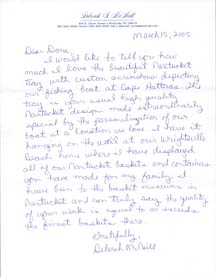 Deborah S. McNeill
March 15, 2005
Dear Dane,
I would like to tell you how
much I love the beautiful Nantucket
Tray with custom scrimshaw depicting
our fishing boat at Cape Hatteras. The
tray is your usual high quality
Nantucket design made extraordinarily
special by the personalization of our
boat at a location we love. I have it
hanging on the wall at our Wrightsville
Beach home where I have displayed
all of our Nantucket baskets and containers
you have made for my family. I
have been to the basket museums in
Nantucket and can truly say the quality
of your work is equal to or exceeds
the finest baskets there.
Gratefully,
Deborah McNeill